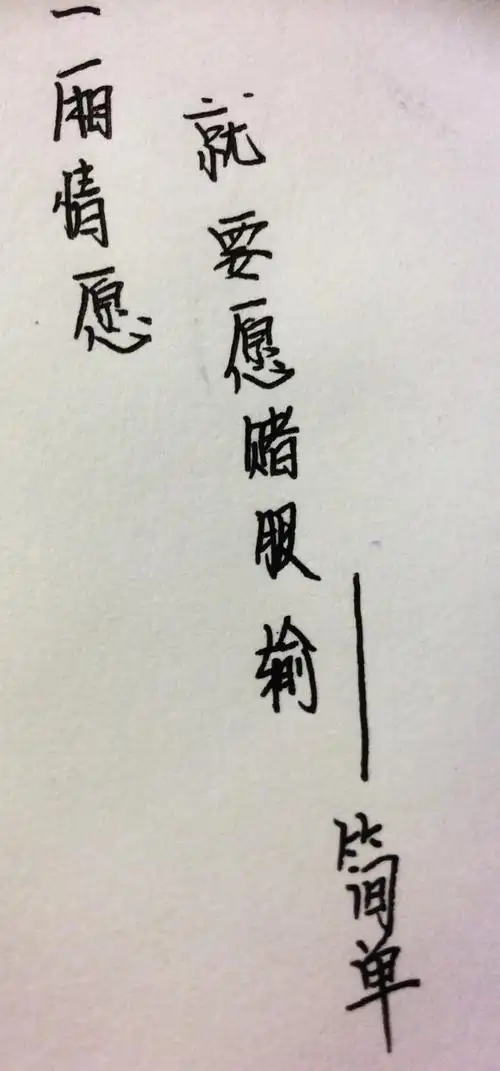 一厢情愿
就要愿赌服输
——简单